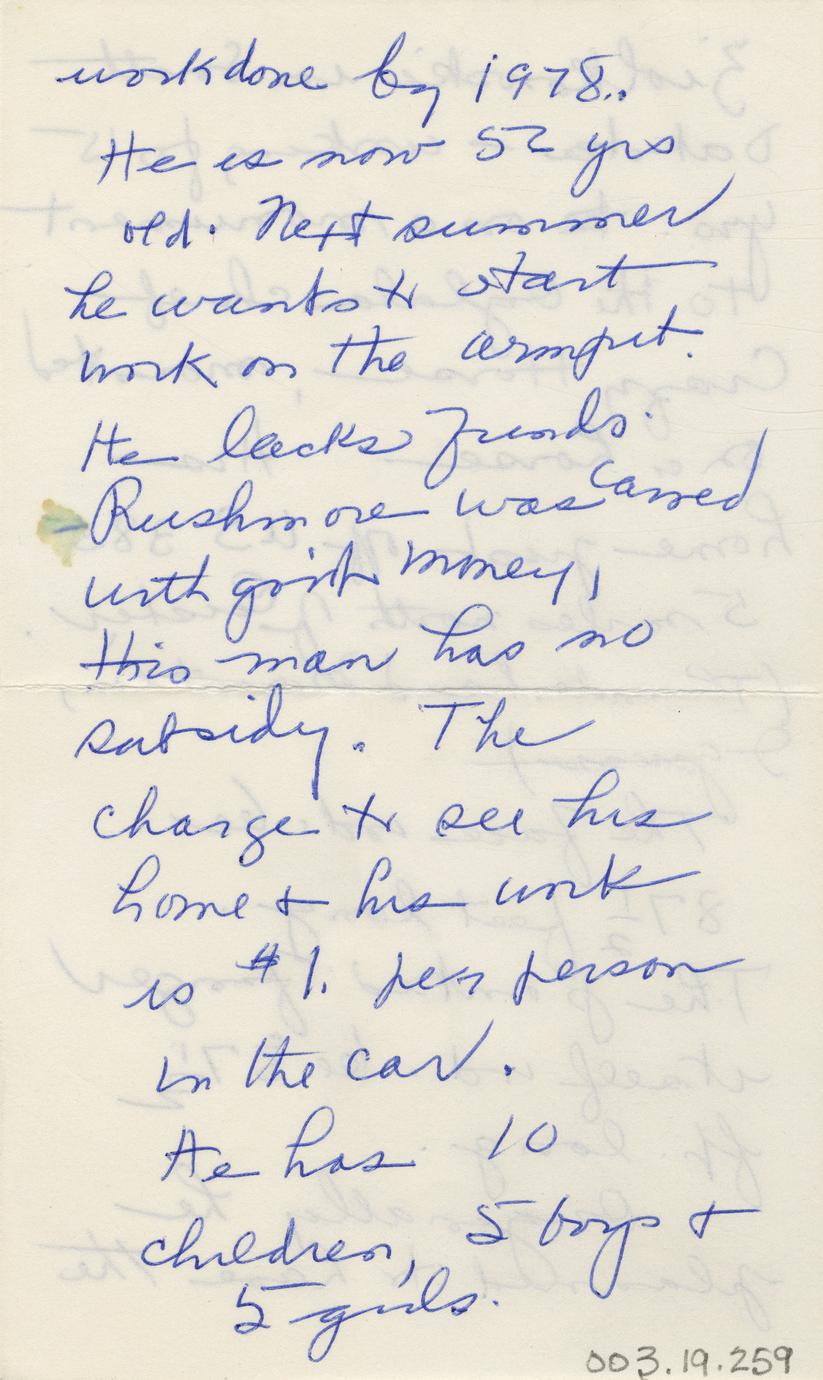 work done by 1978..
He is now 52 yrs
old. Next summer
he wants to start
work on the armpit.
He lacks funds.
Rushmore was carved
with govt money,
this man has no
subsidy. The
charge to see his
home + his work
is $1. per person
in the car.
He has 10
children, 5 boys +
5 girls.
003.19.259